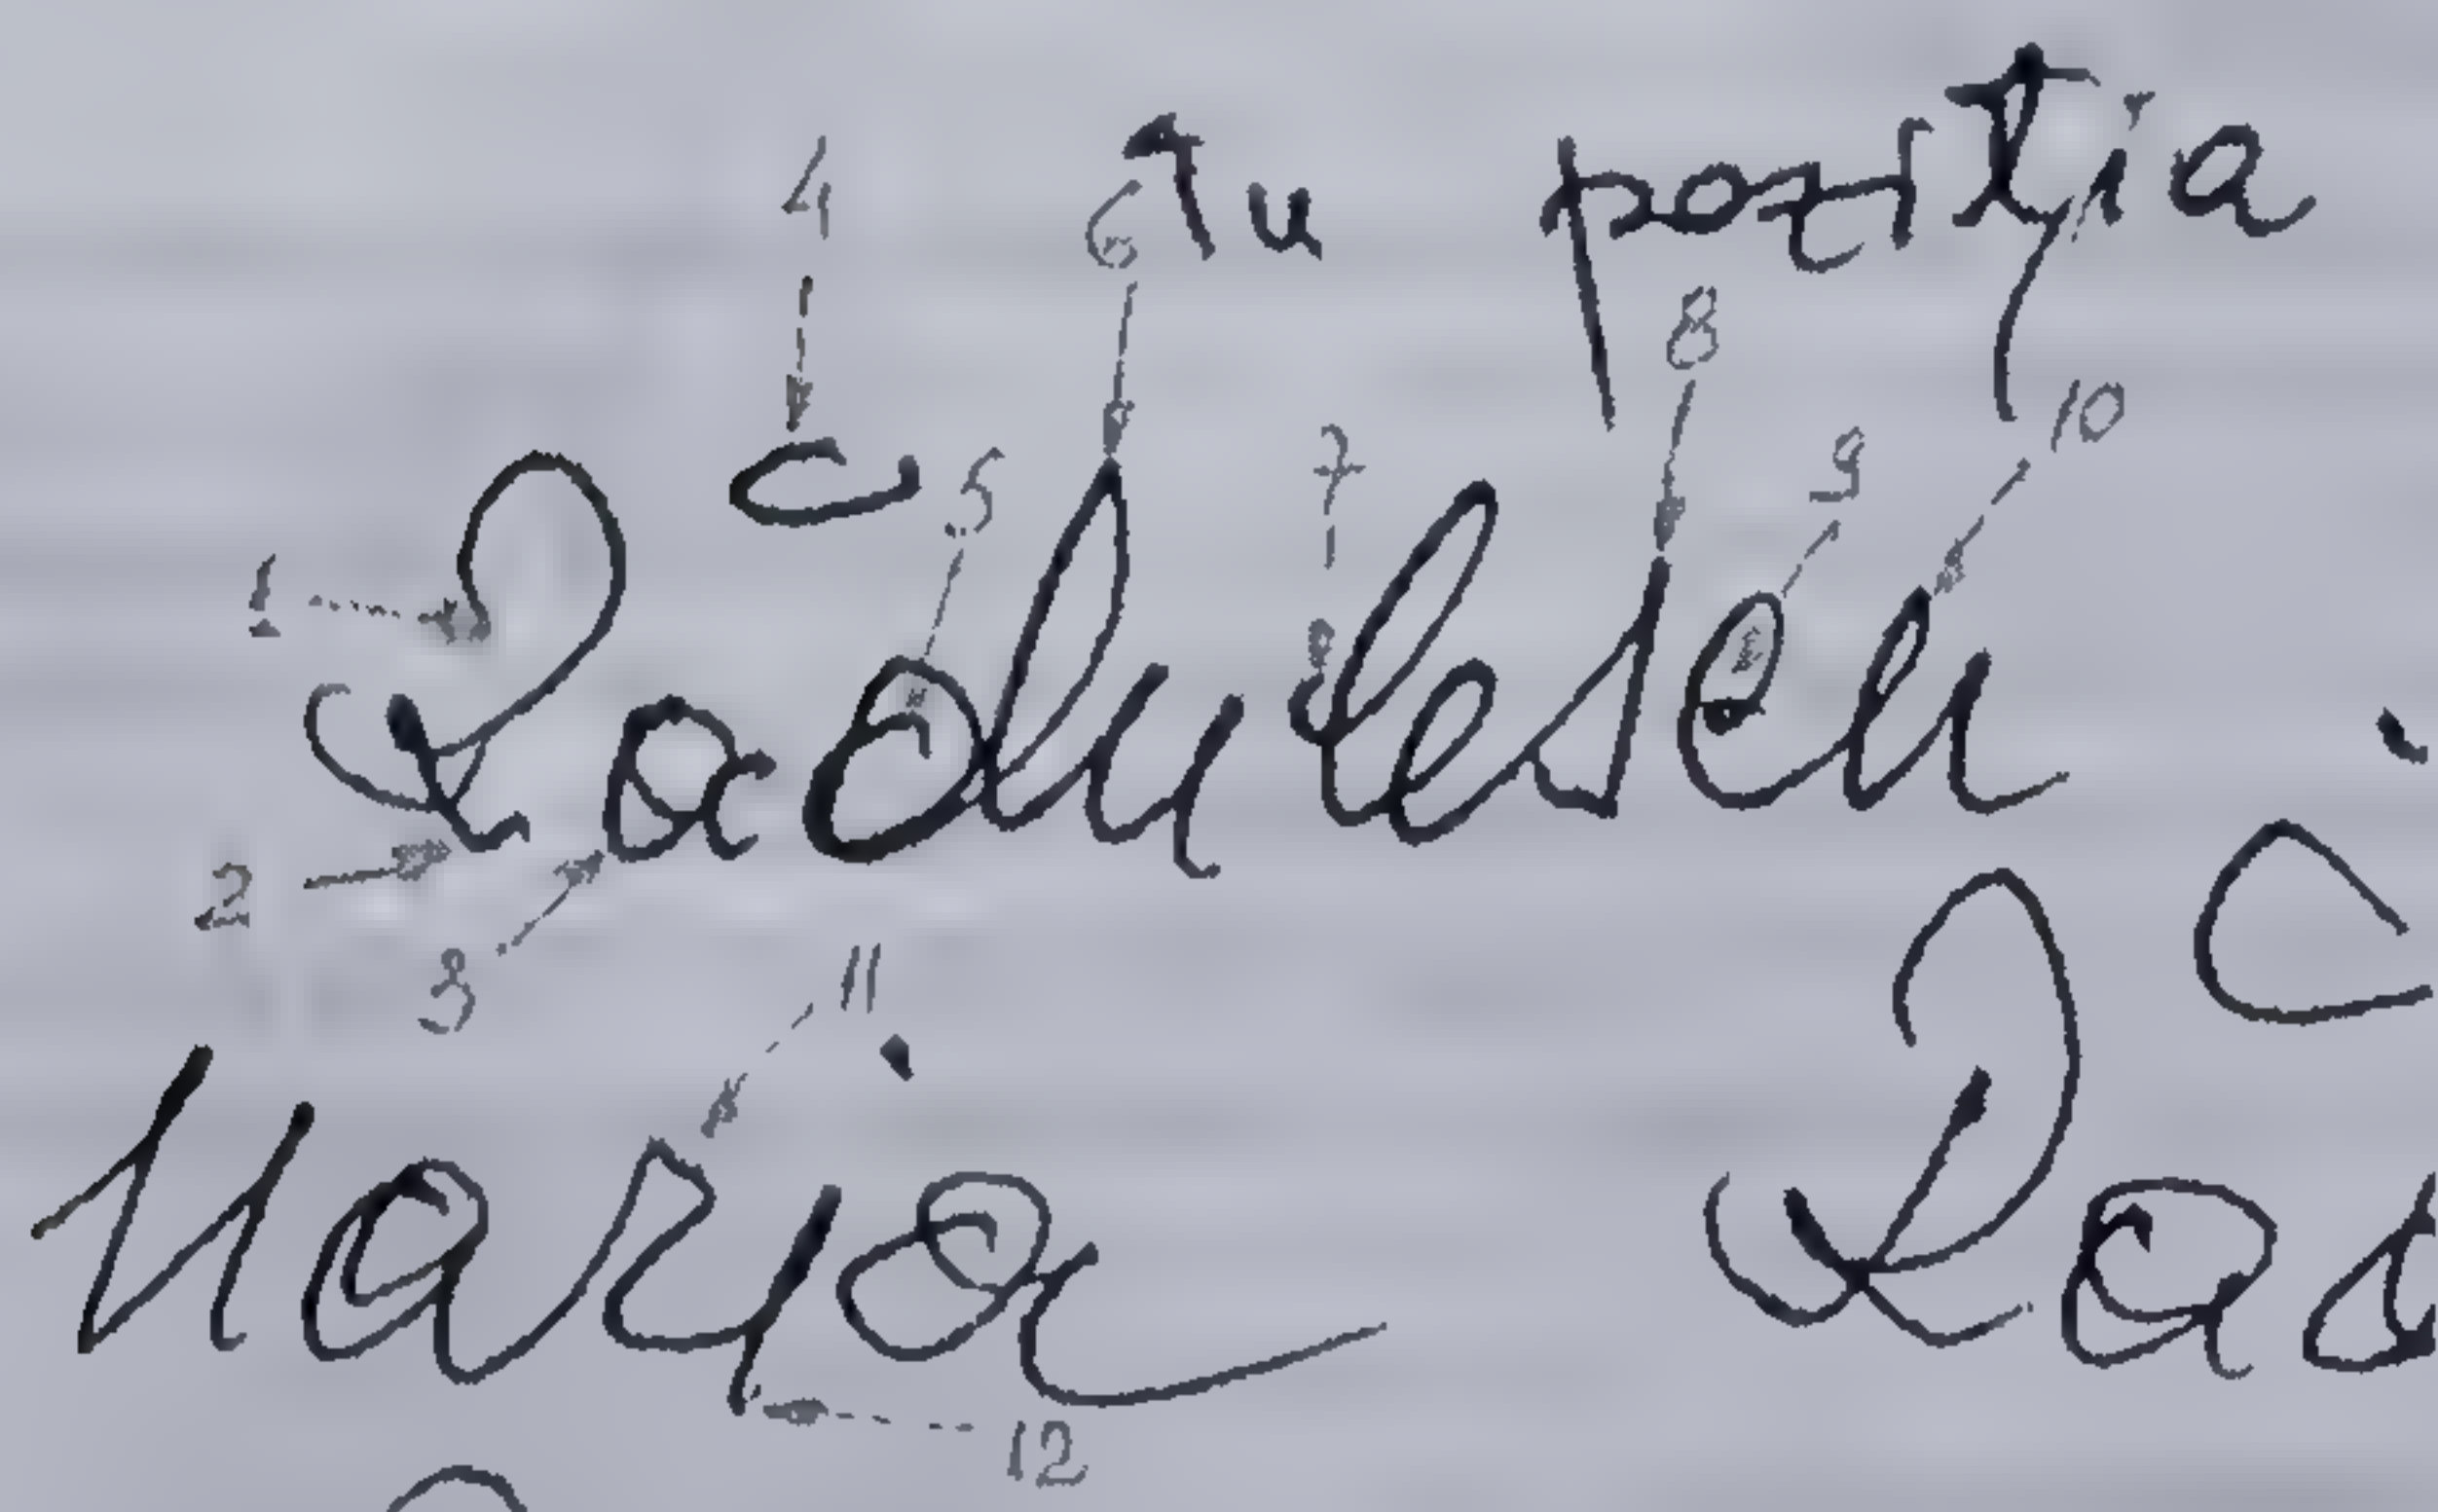 4 6 În poziția
8
1 5 7 9 10
Rădulescu
2
3 11
Maria Rad
12